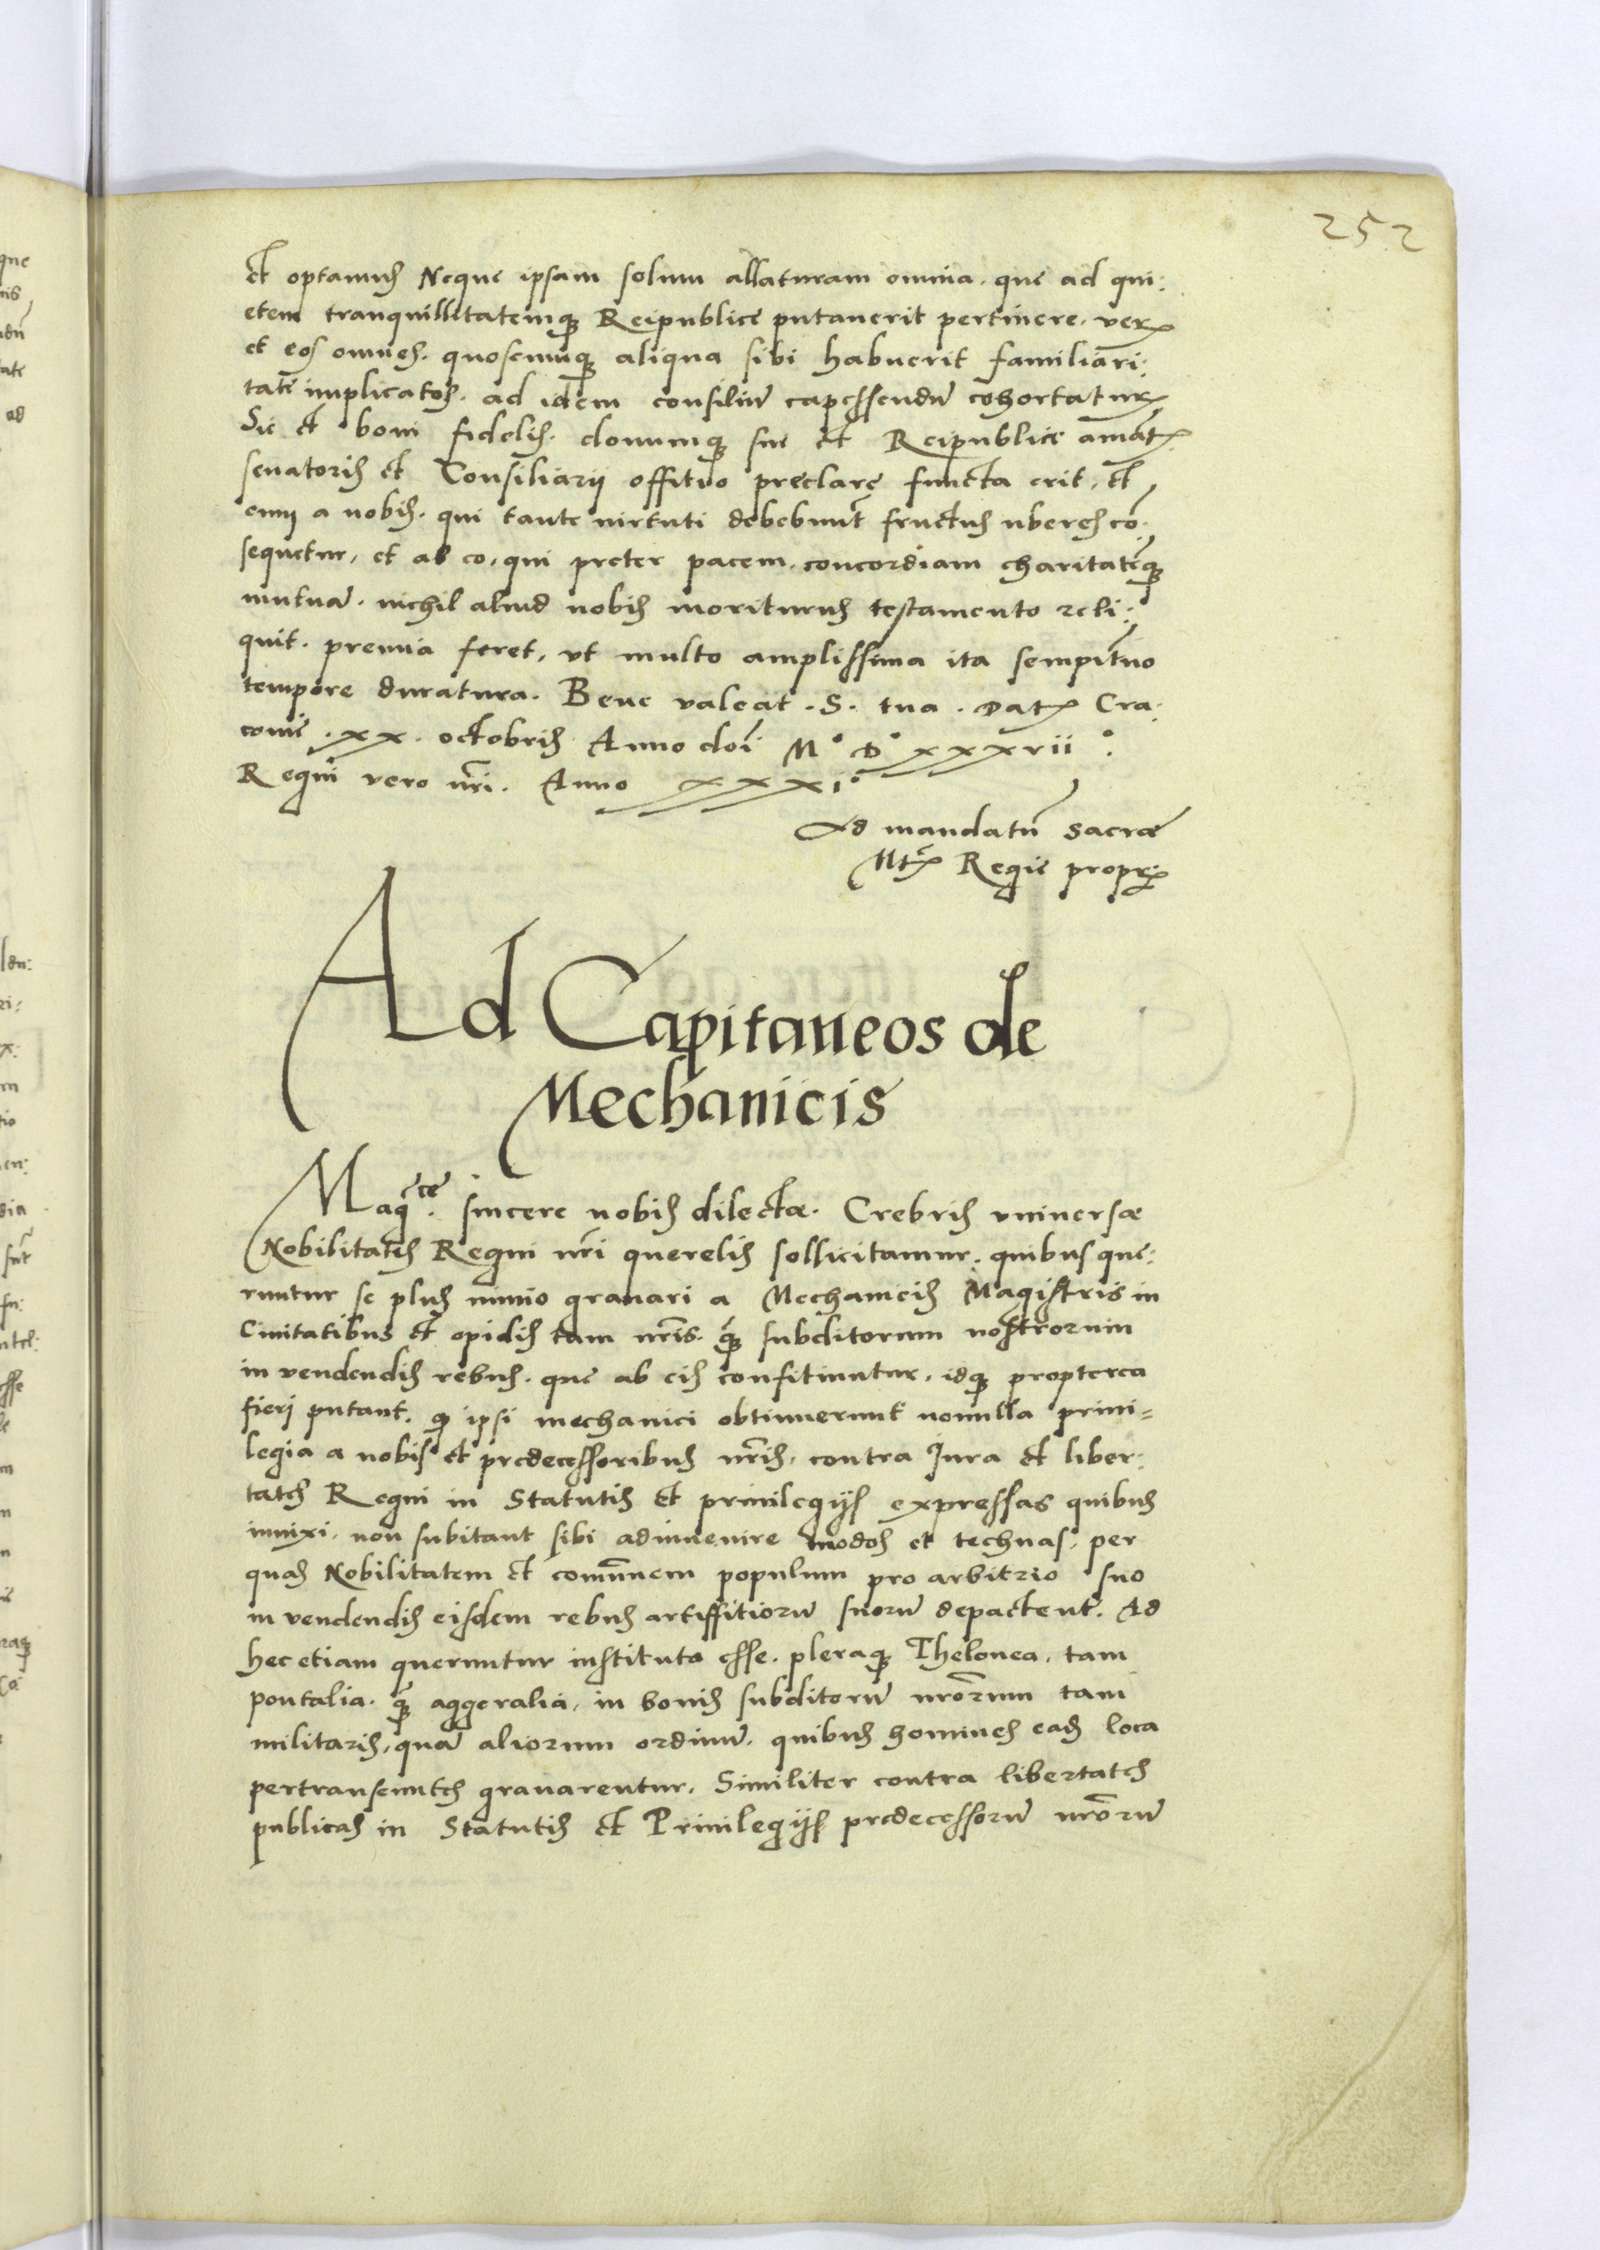 252
et optamus Neque ipsam solum allaturam omnia. que ad qui:
etem tranquillitatemq3 Reipublice putauerit pertinere. veru
et eos omnes. quoscumq3 aliqua sibi habuerit familiari:
tatē implicatos. ad idem consiliū capessendū cohortaturā
Sic et boni fidelis. donumq3 sue et Reipublice amāt
senatoris et Consiliarii offitio preclare functa erit. et
cum a nobis. qui tante virtuti debebunt̄ fructus uberes cō:
sequetur, et ab eo, qui preter pacem. concordiam charitatēq3
mutuā. nichil aliud nobis moriturus testamento reli:
quit. premia feret, vt multo amplissima ita sempit̄no
tempore duratura. Bene valeat . S . tua . Dat Cra:
couie . xx . octobris Anno doī M° D° xxxvii°.
Regni vero nr̄i. Anno xxxi°
Ad mandatū sacræ
Mtis Regie propr
Ad Capitaneos de
Mechanicis
Mag̅ce. sincere nobis dilectæ. Crebris vniuersæ
Nobilitatis Regni nr̄i querelis sollicitamur. quibus que:
runtur se plus nimio grauari a Mechanicis Magistris in
Ciuitatibus et opidis tam nr̄is. q̄3 subditorum nostrorum
in vendendis rebus. que ab eis confitiuntur. idq3 propterea
fieri putant. q3 ipsi mechanici obtinuerunt nonulla priui=
legia a nobis et predecessoribus nr̄is. contra Jura et liber:
tates Regni in Statutis et priuilegijs expressas quibus
innixi. non subitant sibi adinuenire modos et technas. per
quas Nobilitatem et com̄unem populum pro arbitrio suo
in vendendis eisdem rebus artiffitiorū suorū depactent. Ad
hec etiam queruntur instituta esse. pleraq3 Thelonea. tam
pontalia. q̄3 aggeralia, in bonis subditorū nr̄orum tam
militaris, quā aliorum ordinū. quibus homines eadē loca
pertranseuntes grauarentur. Similiter contra libertates
publicas in Statutis et Priuilegijs predecessorū nr̄orū